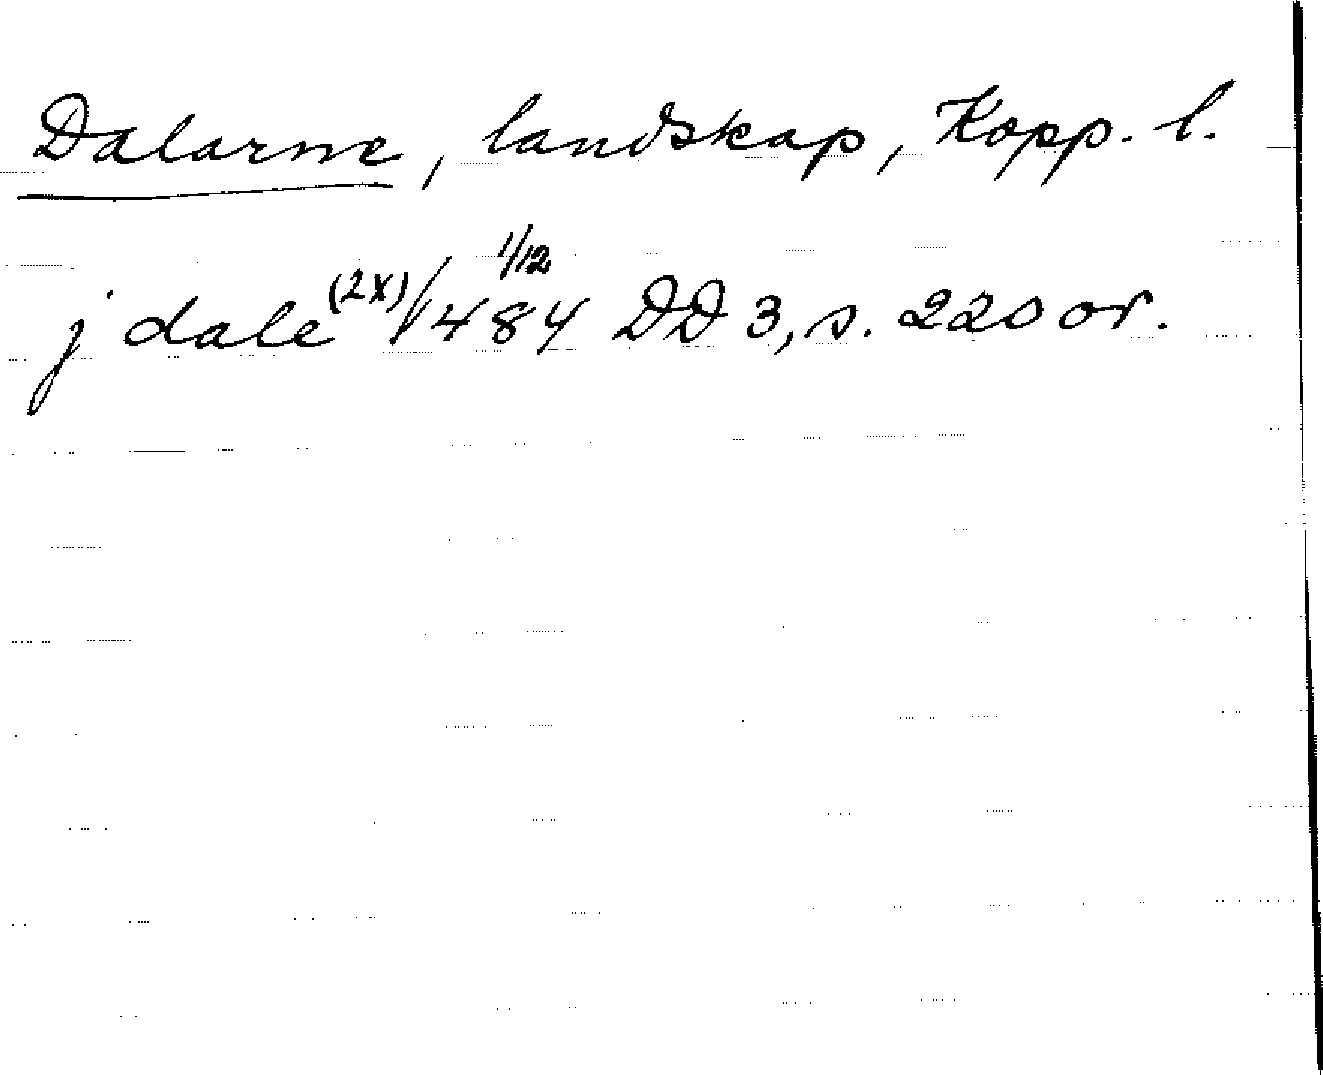 Dalarne, landskap, Kopp. l.
j dale (2x)/ 1/12 484 DD 3, s. 220 or.